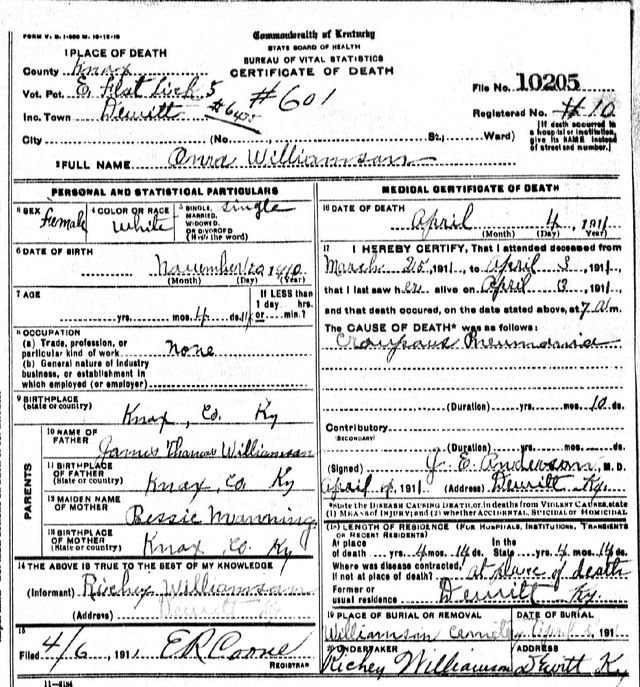 FORM V. S. 1-500 M. 10-15-10
Commonwealth of Kentucky
STATE BOARD OF HEALTH
BUREAU OF VITAL STATISTICS
CERTIFICATE OF DEATH
1 PLACE OF DEATH
County Knox
Vot. Pct. E. Flat Lick 5
Inc. Town Dewitt
#6475
#601
File No. 10205
Registered No. #10
City (No., St.; Ward)
[If death occurred in a hospital or institution, give its NAME instead of street and number.]
2 FULL NAME Williamson
PERSONAL AND STATISTICAL PARTICULARS
3 SEX female
4 COLOR OR RACE White
5 SINGLE, MARRIED, WIDOWED, OR DIVORCED (Write the word) single
6 DATE OF BIRTH
November 20, 1910
(Month) (Day) (Year)
7 AGE
yrs. 4 mos. 14 ds.
If LESS than 1 day hrs. or min.?
8 OCCUPATION
(a) Trade, profession, or particular kind of work None
(b) General nature of industry business, or establishment in which employed (or employer)
9 BIRTHPLACE
(State or country)
Knox, Co. Ky
PARENTS
10 NAME OF FATHER
James Thomas Williamson
11 BIRTHPLACE OF FATHER
(State or country)
Knox, Co Ky
12 MAIDEN NAME OF MOTHER
Bessie Manning
13 BIRTHPLACE OF MOTHER
(State or country)
Knox Co. Ky
14 THE ABOVE IS TRUE TO THE BEST OF MY KNOWLEDGE
(Informant) Richey Williamson
(Address) Dewitt Ky
15
Filed 4/6, 1911
REGISTRAR
11-3184
MEDICAL CERTIFICATE OF DEATH
16 DATE OF DEATH
April 4, 1911
(Month) (Day) (Year)
17 I HEREBY CERTIFY, That I attended deceased from
March 25, 1911, to April 3, 1911
that I last saw her alive on April 3, 1911
and that death occured, on the date stated above, at 7 A m.
The CAUSE OF DEATH* was as follows:
Croupous Pneumonia
(Duration) yrs. mos. 10 ds.
Contributory
(SECONDARY)
(Duration) yrs. mos. ds.
(Signed) J. E. Anderson, M. D.
April 4, 1911 (Address) Dewitt Ky.
*State the DISEASE CAUSING DEATH, or, in deaths from VIOLENT CAUSES, state
(1) MEANS OF INJURY; and (2) whether ACCIDENTAL, SUICIDAL or HOMICIDAL
18 LENGTH OF RESIDENCE (FOR HOSPITALS, INSTITUTIONS, TRANSIENTS OR RECENT RESIDENTS)
At place of death yrs. 4 mos. 14 ds. In the State yrs. 4 mos. 14 ds.
Where was disease contracted, if not at place of death? at place of death
Former or usual residence Dewitt Ky.
19 PLACE OF BURIAL OR REMOVAL
Williamson
DATE OF BURIAL
April 191
20 UNDERTAKER
Richey Williamson
ADDRESS
Dewitt Ky